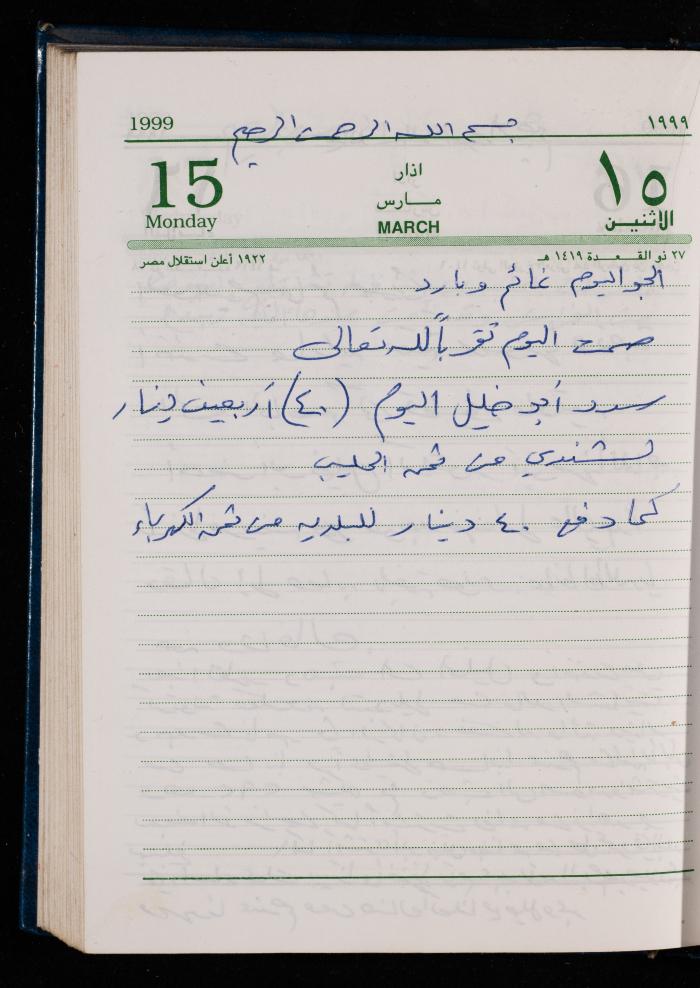 1999 ١٩٩٩
بسم الله الرحمن الرحيم
15 اذار ١٥
Monday مــارس الاثنين
MARCH
١٩٢٢ أعلن استقلال مصر ٢٧ ذو القــعــدة ١٤١٩ هـ
الجو اليوم غائم وبارد
صمت اليوم تقرباً لله تعالى
سدد أبو خليل اليوم (٤٠) أربعين دينار
لشندي من ثمن الحليب
كما دفع ٤٠ دينار للبلديه من ثمن الكهرباء